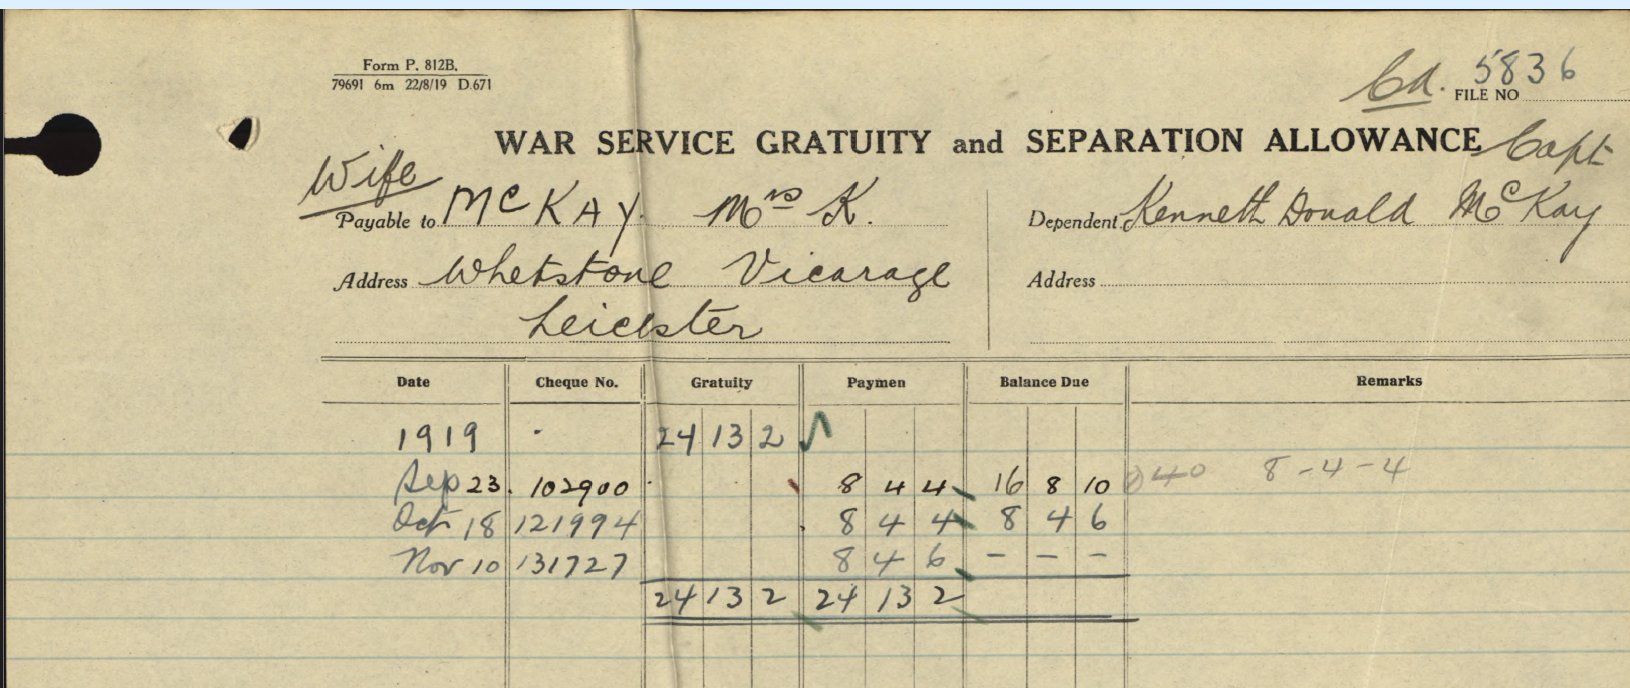 Form P. 812B.
79691 6m 22/8/19 D.671
Cd. 5836
FILE NO
WAR SERVICE GRATUITY and SEPARATION ALLOWANCE
Capt
Wife
Payable to McKAY. Mrs K.
Dependent Kenneth Donald McKay
Address Whetstone Vicarage
Address
Leicester
Date Cheque No. Gratuity Paymen Balance Due Remarks
1919 24 13 2
Sep 23. 102900 8 4 4 16 8 10 8-4-4
Oct 18 121994 8 4 4 8 4 6
Nov 10 131727 8 4 6 – – –
24 13 2 24 13 2